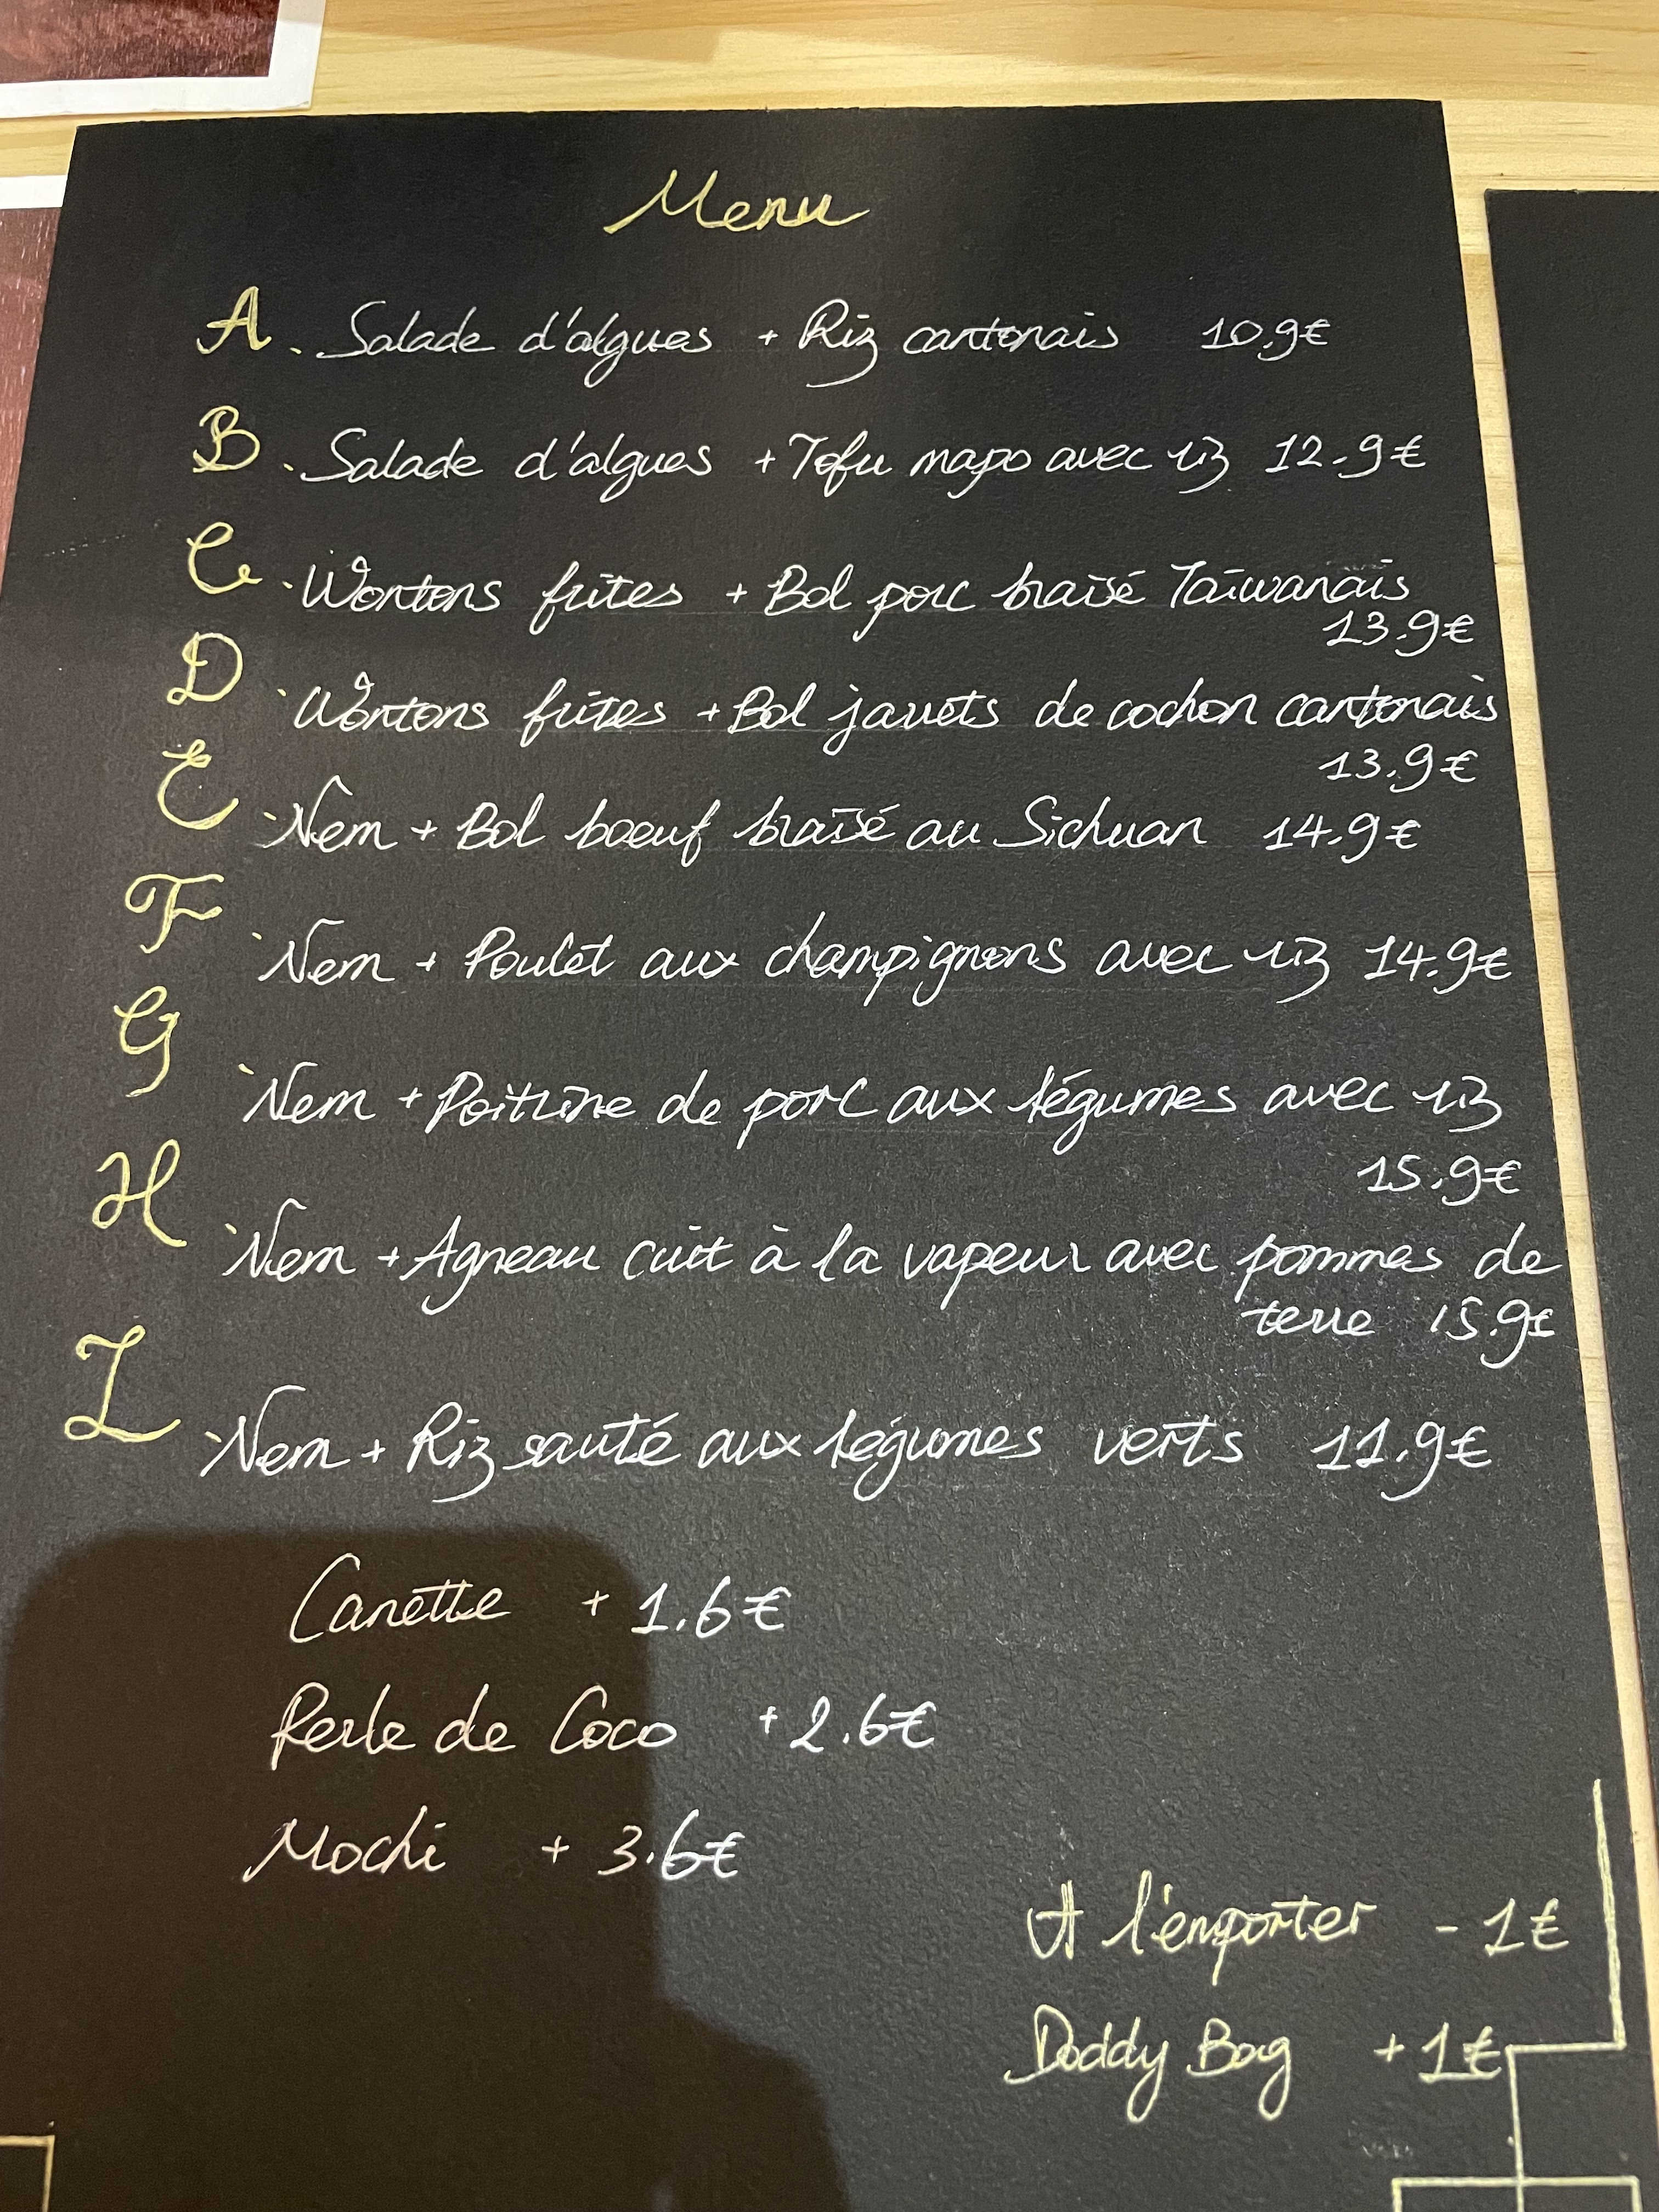 Menu
A. Salade d'algues + Riz cantonais 10.9€
B. Salade d'algues + Tofu mapo avec riz 12.9€
C. Wontons frites + Bol porc braisé Taïwanais
13.9€
D. Wontons frites + Bol jarrets de cochon cantonais
13.9€
E. Nem + Bol boeuf braisé au Sichuan 14.9€
F. Nem + Poulet aux champignons avec riz 14.9€
G. Nem + Poitrine de porc aux légumes avec riz
15.9€
H. Nem + Agneau cuit à la vapeur avec pommes de
terre 15.9€
I. Nem + Riz sauté aux légumes verts 11.9€
Canette + 1.6€
Perle de Coco + 2.6€
Mochi + 3.6€
A l'emporter - 1€
Doddy Bag + 1€